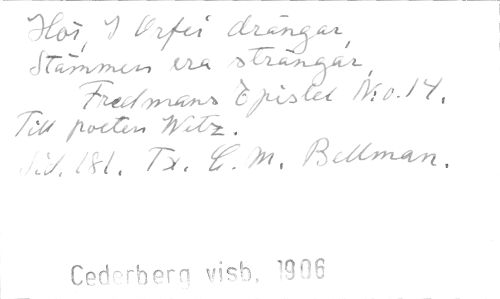 Hör, I Orfei drängar,
Stämmen era strängar,
Fredmans Epistel N:o.14.
Till poeten Wetz.
Sid. 181. Tx. C. M. Bellman.
Cederberg visb. 1906